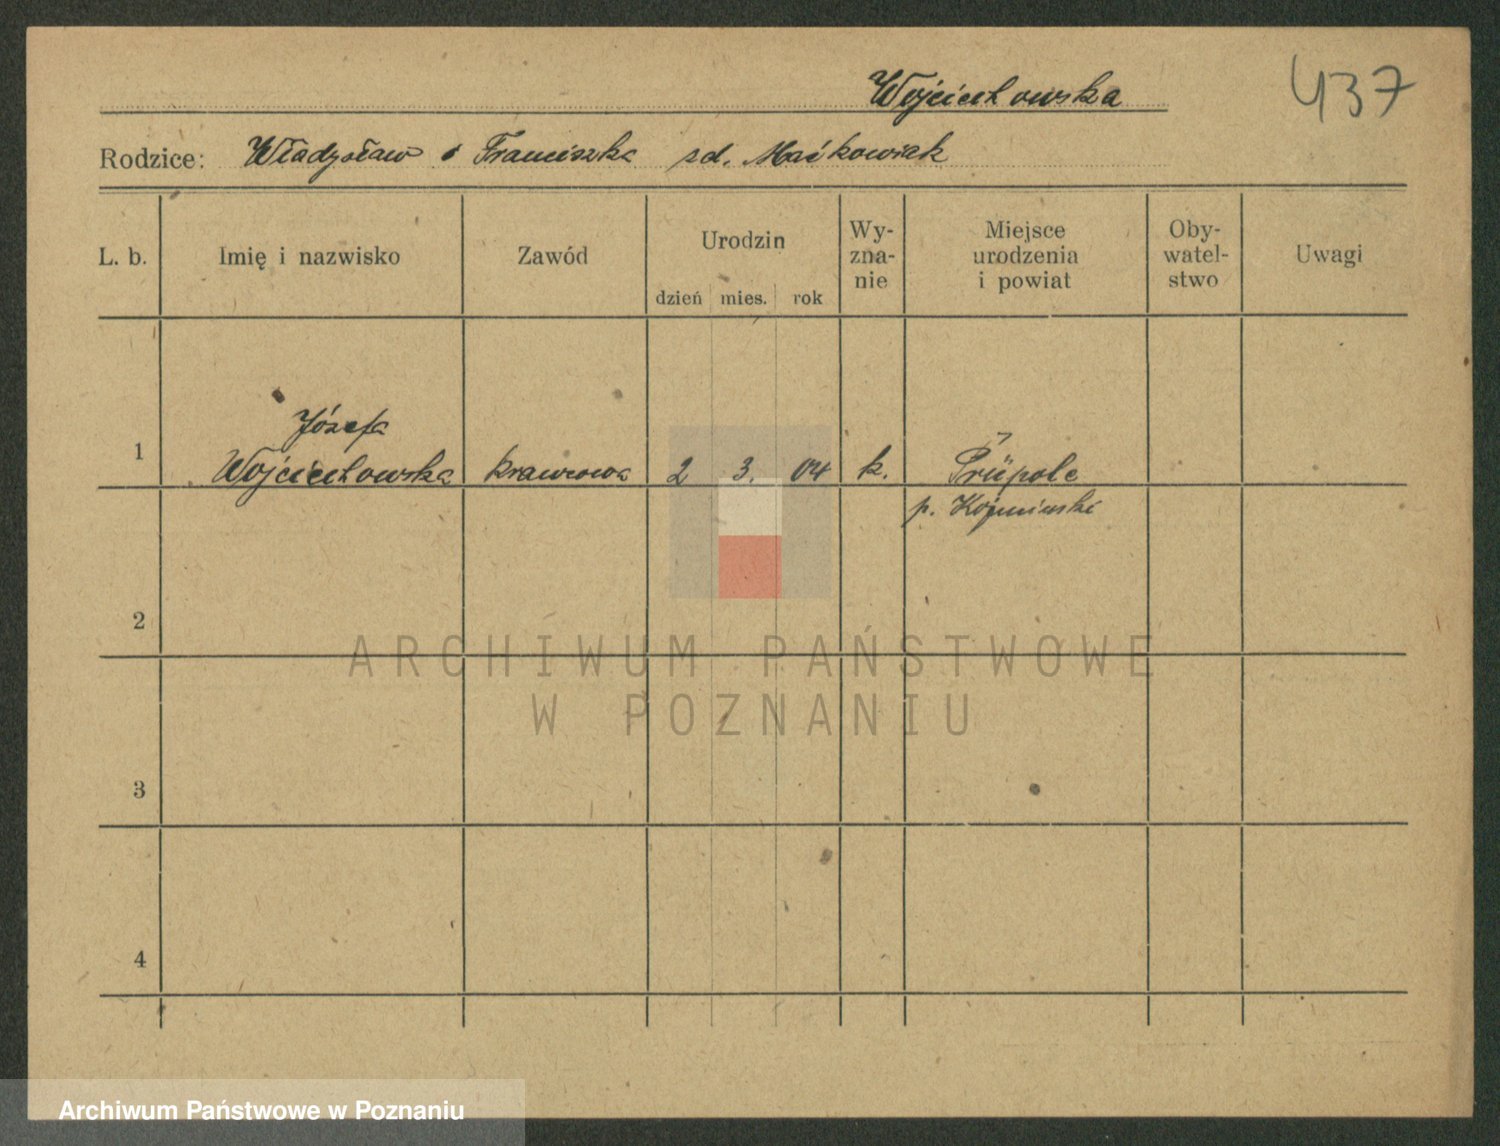 Wojciechowska
437
Rodzice: Władysław i Franciszka zd. Maćkowiak
L. b.
Imię i nazwisko
Zawód
Urodzin
dzień mies. rok
Wy-
zna-
nie
Miejsce
urodzenia
i powiat
Oby-
watel-
stwo
Uwagi
1
Józefa
Wojciechowska
krawcowa
2 3. 04
k.
p.
2
3
4
ARCHIWUM PAŃSTWOWE
W POZNANIU
Archiwum Państwowe w Poznaniu